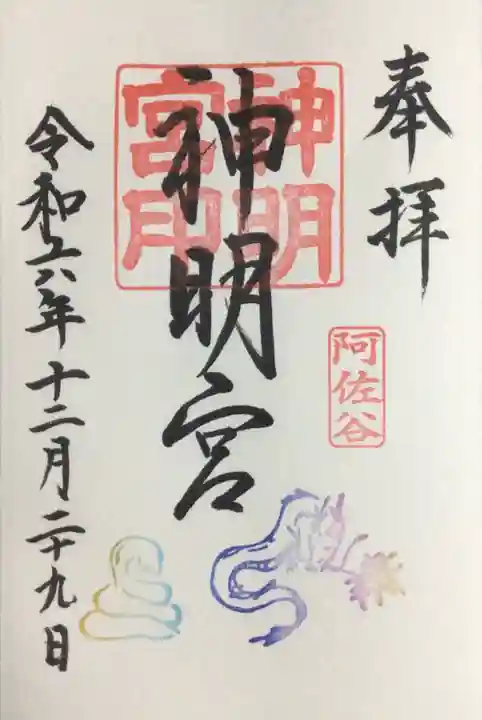 奉拝
阿佐谷
神明宮
神明宮印
令和六年十二月二十九日